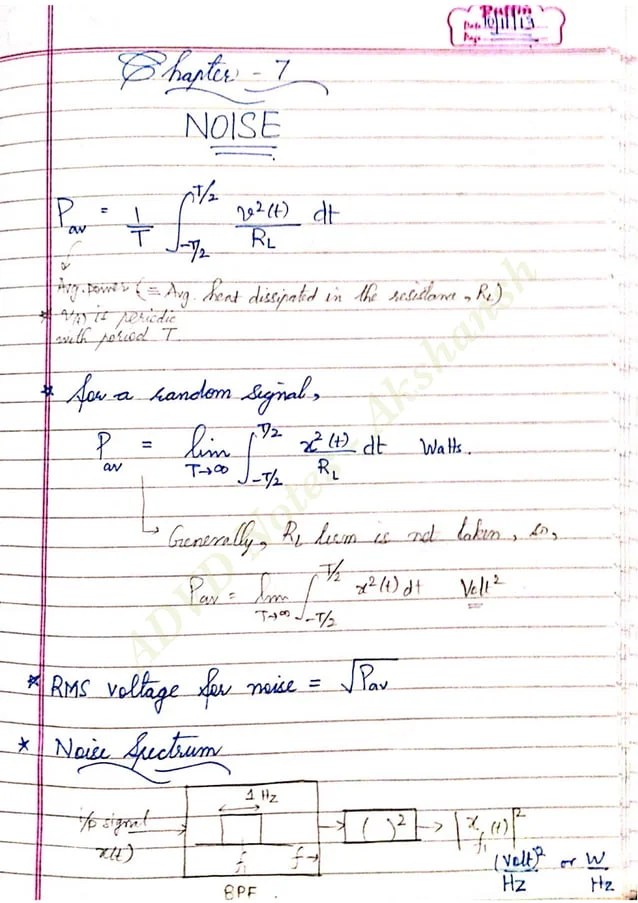 Puffin
Date 10/11/13
Page
Chapter - 7
NOISE
P_av = 1/T ∫_{-T/2}^{T/2} v²(t)/R_L dt
Avg. power (= Avg. heat dissipated in the resistance, R_L)
* v(t) is periodic
with period T.
* for a random signal,
P_av = lim_{T→∞} ∫_{-T/2}^{T/2} x²(t)/R_L dt Watts.
Generally, R_L term is not taken, so,
P_av = lim_{T→∞} ∫_{-T/2}^{T/2} x²(t) dt Volt²
* RMS voltage for noise = √P_av
* Noise Spectrum
1 Hz
i/p signal x(t) → f₁ f→ → ( )² → |x_{f₁}(t)|²
(Volt)²/Hz or W/Hz
BPF
ADVD Notes - Akshansh